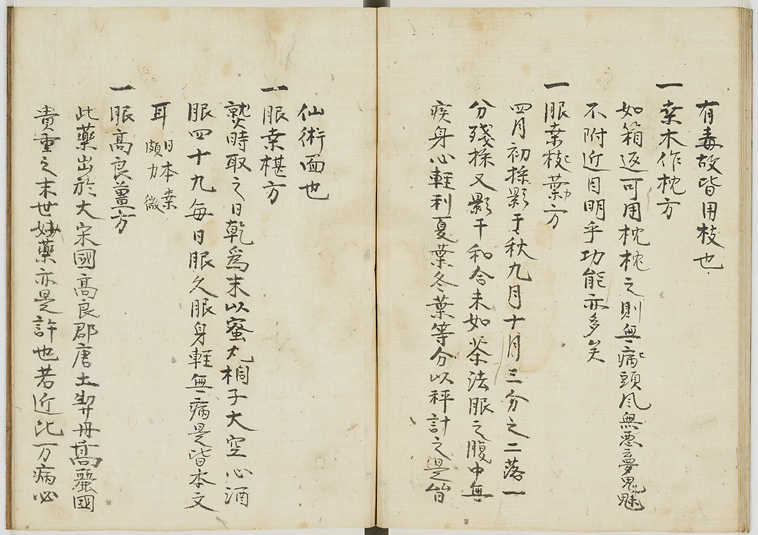 有毒故皆用枝也
一 桒木作枕方
如箱返可用枕枕之則無病頭風無悪夢鬼魅
不附近目明乎功能亦多矣
一 服桒枝葉方
四月初採影于秋九月十月三分之二落一
分残採又影干和合末如茶法服之腹中無
疾身心軽利夏葉冬葉等分以秤計之是皆
仙術面也
一 服桒椹方
熟時取之日乾為末以蜜丸桐子大空心酒
服四十九毎日服久服身軽無病是皆本文
耳 日本桒
頗力微
一 服高良薑方
此薬出於大宋國高良郡唐土契丹高麗國
貴重之末世妙薬亦是許也若近比万病必